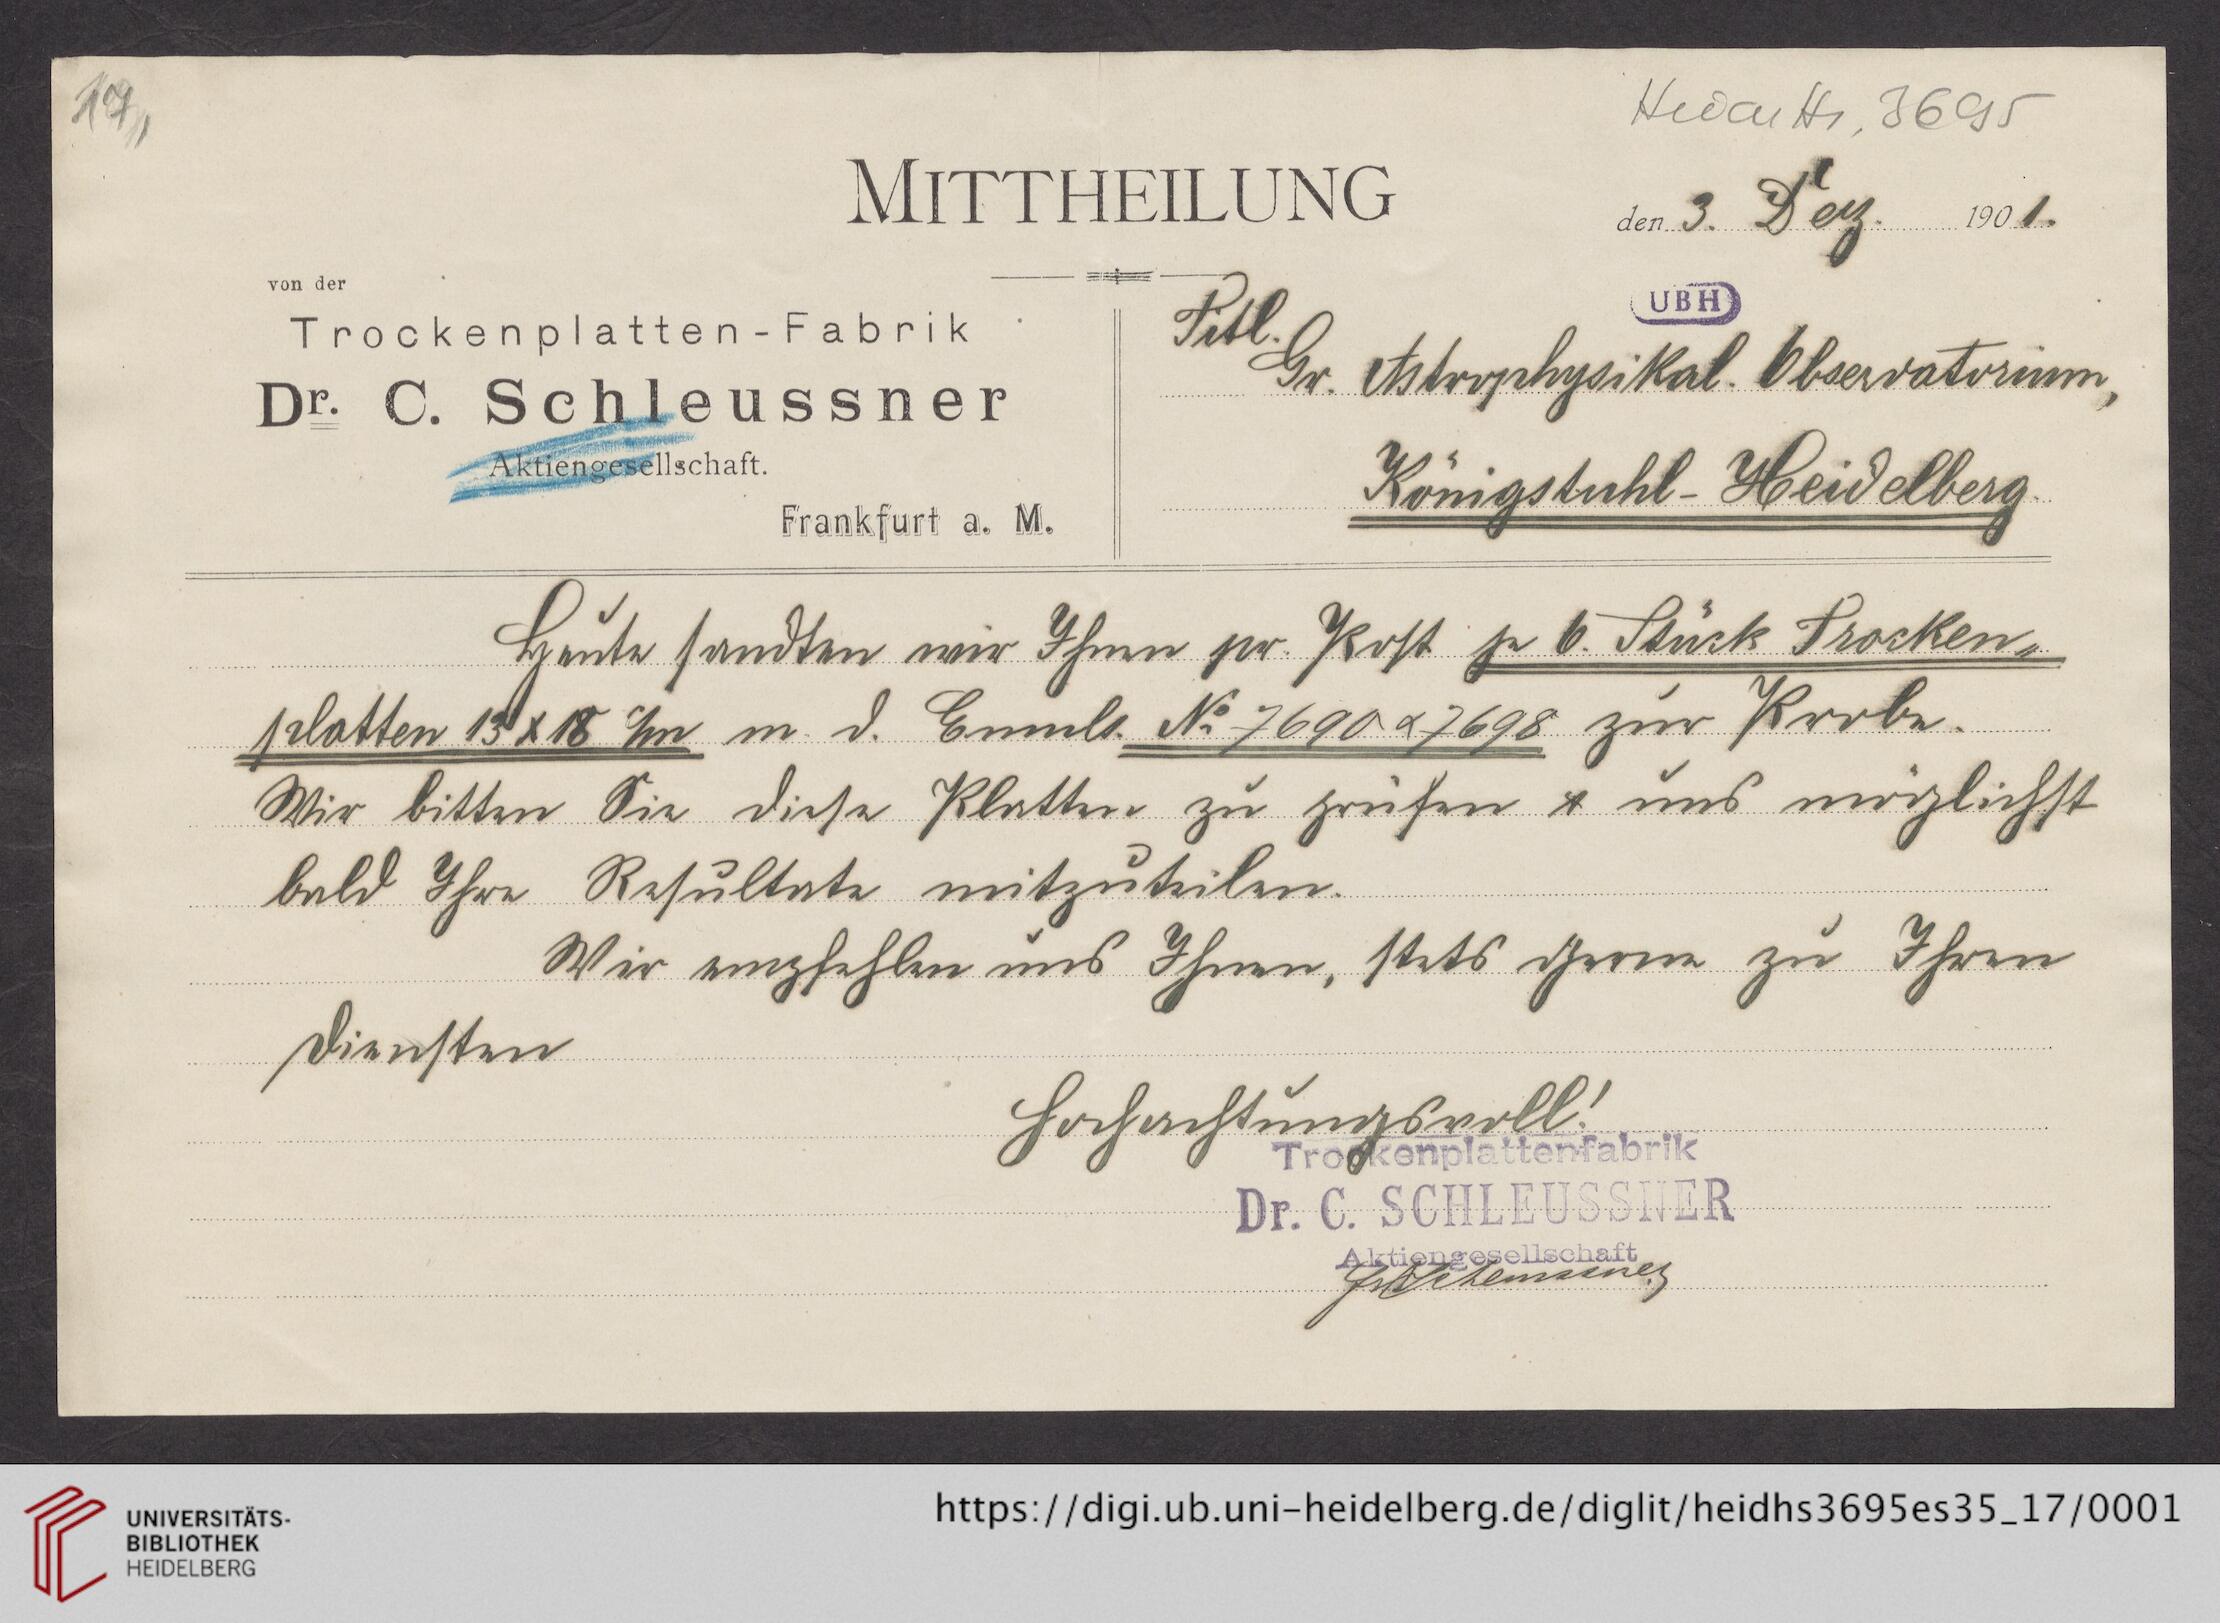 17
Heid. Hs. 3695
MITTHEILUNG
den 3. Dez. 1901.
von der
Trockenplatten-Fabrik
Dr. C. Schleussner
Aktiengesellschaft.
Frankfurt a. M.
UBH
Titl.
Gr. Astrophysikal. Observatorium,
Königstuhl-Heidelberg.
Heute sandten wir Ihnen pr. Post je 6. Stück Trocken-
platten 13 x 18 c/m m. d. Emuls. No. 7690 & 7698 zur Probe.
Wir bitten Sie diese Platten zu prüfen & uns möglichst
bald Ihre Resultate mitzuteilen.
Wir empfehlen uns Ihnen, stets gerne zu Ihren
Diensten
Hochachtungsvoll!
Trockenplattenfabrik
Dr. C. SCHLEUSSNER
Aktiengesellschaft
Schleussner
UNIVERSITÄTS-
BIBLIOTHEK
HEIDELBERG
https://digi.ub.uni-heidelberg.de/diglit/heidhs3695es35_17/0001